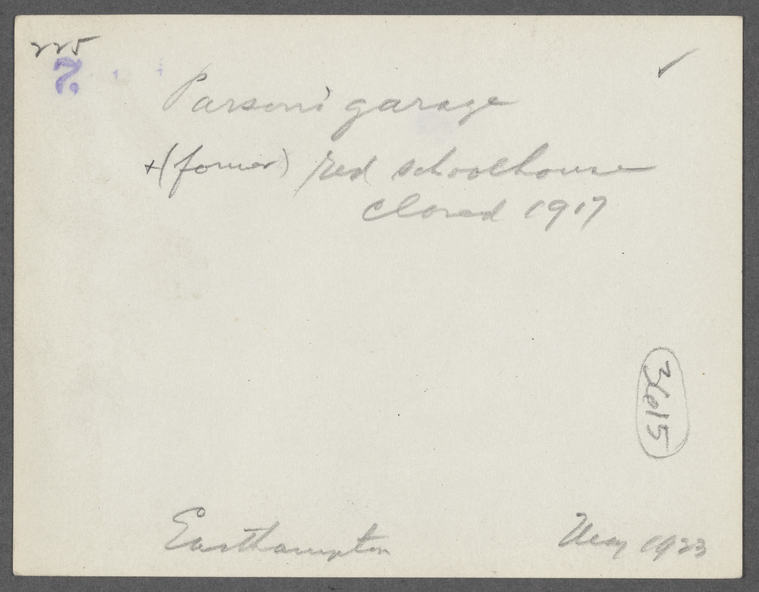 225
Parson's garage
+(former) red schoolhouse
closed 1917
3615
Easthampton May 1923